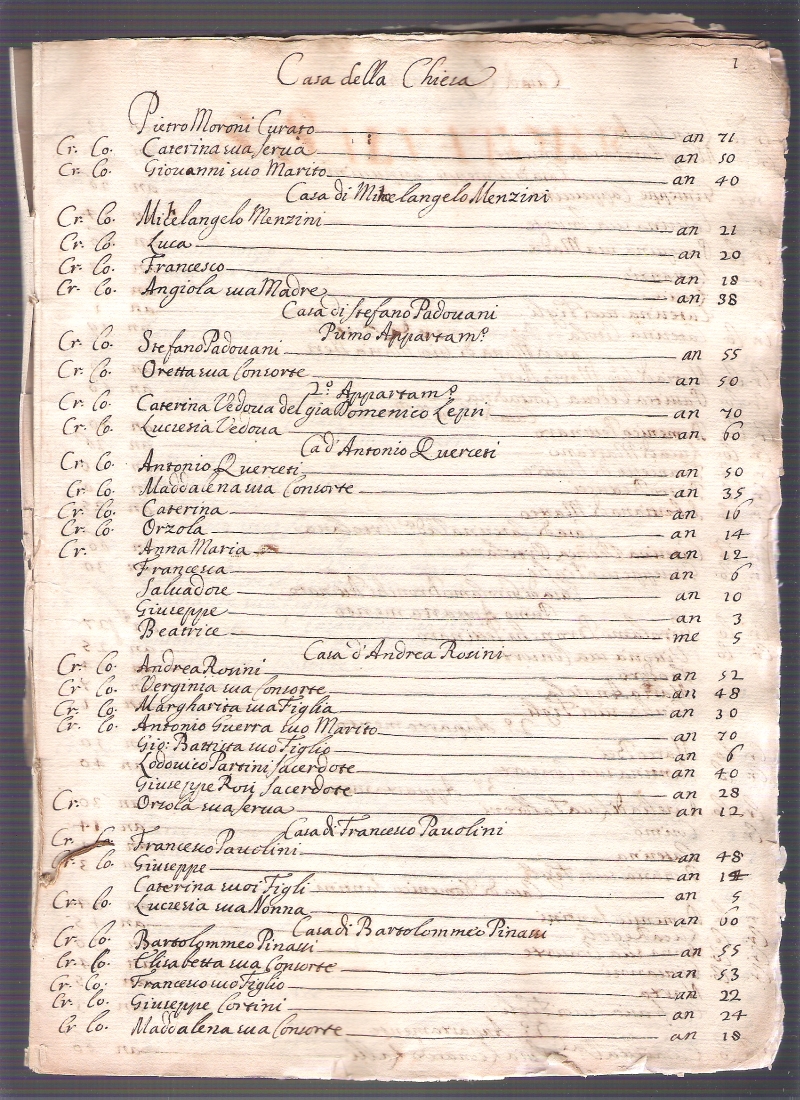 1
Casa della Chiesa
Pietro Moroni Curato an 71
Cr. Co. Caterina sua serva an 50
Cr. Co. Giovanni suo Marito an 40
Casa di Michelangelo Menzini
Cr. Co. Michelangelo Menzini an 21
Cr. Co. Luca an 20
Cr. Co. Francesco an 18
Cr. Co. Angiola sua Madre an 38
Casa di Stefano Padouani
Primo Appartam.o
Cr. Co. Stefano Padouani an 55
Cr. Co. Oretta sua Consorte an 50
2.o Appartam.o
Cr. Co. Caterina Vedoua del gia Domenico Lepri an 70
Cr. Co. Lucresia Vedoua an 60
Ca d'Antonio Querceti
Cr. Co. Antonio Querceti an 50
Cr. Co. Maddalena sua Consorte an 35
Cr. Co. Caterina an 16
Cr. Co. Orzola an 14
Cr. Anna Maria an 12
Francesca an 6
Salvadore an 10
Giuseppe an 3
Beatrice me 5
Casa d'Andrea Rosini
Cr. Co. Andrea Rosini an 52
Cr. Co. Verginia sua Consorte an 48
Cr. Co. Margharita sua Figlia an 30
Cr. Co. Antonio Guerra suo Marito an 70
Gio: Battista suo Figlio an 6
Lodovico Partini Sacerdote an 40
Giuseppe Rosi Sacerdote an 28
Cr. Orsola sua serua an 12
Casa di Francesco Pauolini
Cr. Co. Francesco Pauolini an 48
Cr. Co. Giuseppe an 14
Caterina suoi Figli an 5
Cr. Co. Lucresia sua Nonna an 60
Casa di Bartolommeo Pinassi
Cr. Co. Bartolommeo Pinassi an 55
Cr. Co. Elisabetta sua Consorte an 53
Cr. Co. Francesco suo Figlio an 22
Cr. Co. Giuseppe Cortini an 24
Cr. Co. Maddalena sua Consorte an 18